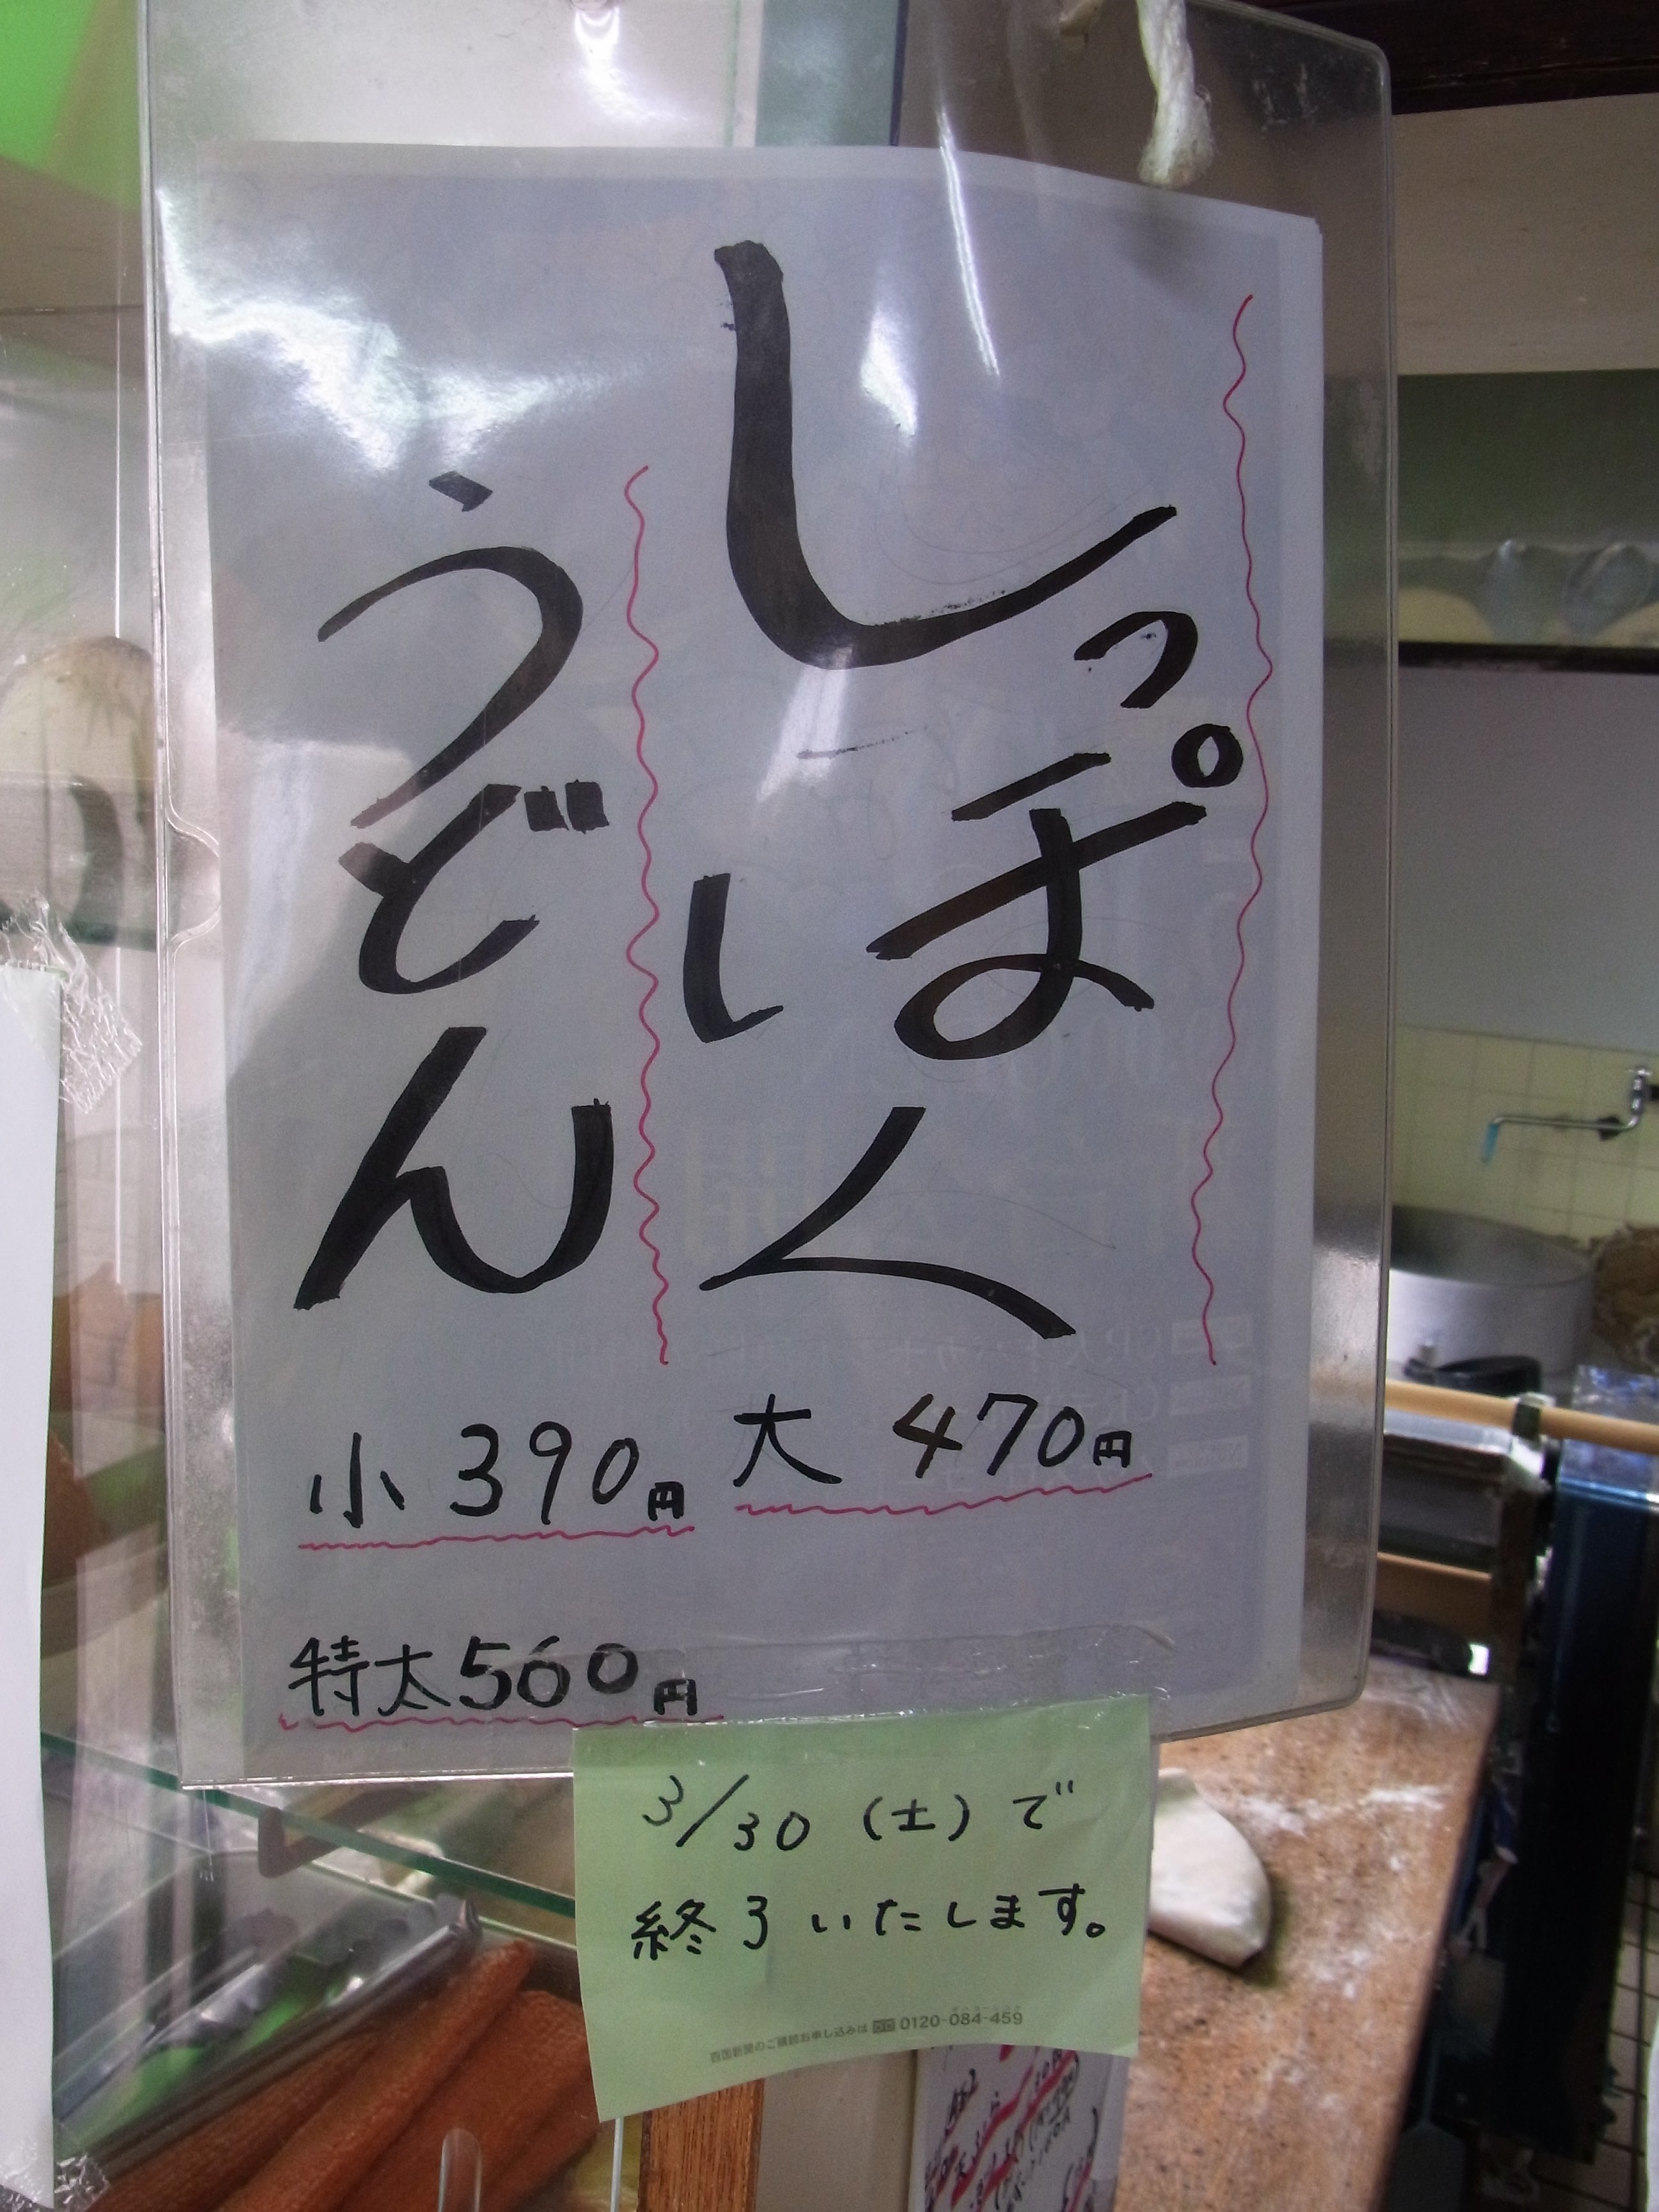 しっぽく
うどん
小390円 大 470円
特太560円
3/30 (土) で
終了いたします。
四国新聞のご購読お申し込みは 0120-084-459